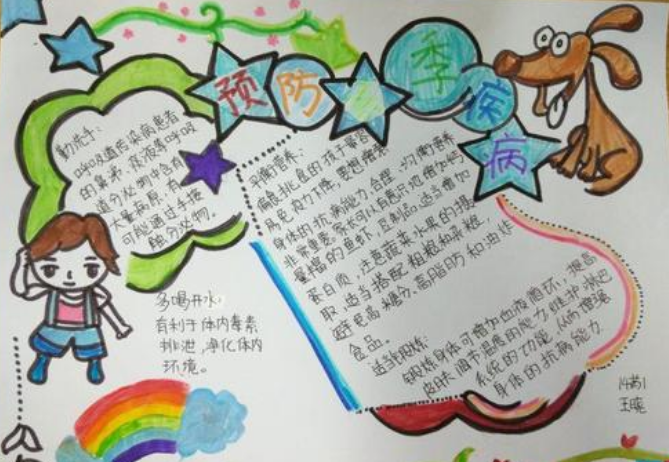 预防春季疾病
勤洗手：
呼吸道传染病患者
的鼻涕、痰液等呼吸
道分泌物中含有
大量病原，有
可能通过手接
触分泌物。
平衡营养：
偏食挑食的孩子常容
易免疫力下降，要想增强
身体的抗病能力，合理、均衡营养
非常重要。家长可以有意识地增加钙
量富的鱼虾、豆制品，适当增加
蛋白质，注意蔬菜水果的摄
取，适当搭配粗粮和杂粮，
避免高糖分、高脂肪和油炸
食品。
适当锻炼：
锻炼身体可增加血液循环，提高
皮肤调节温度的能力，维护淋巴
系统的功能，从而增强
身体的抗病能力
多喝开水：
有利于体内毒素
排泄，净化体内
环境。
14药1
王琬